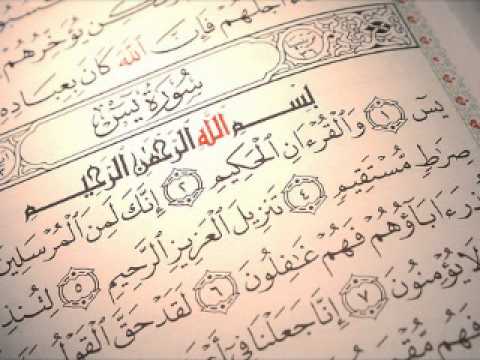 يُؤَخِّرُهُمْ
أَجَلُهُمْ فَإِنَّ ٱللَّهَ كَانَ بِعِبَادِهِ
سُورَةُ يسٓ
بِسْمِ ٱللَّهِ ٱلرَّحْمَٰنِ ٱلرَّحِيمِ
يسٓ ١ وَٱلْقُرْءَانِ ٱلْحَكِيمِ ٢ إِنَّكَ لَمِنَ ٱلْمُرْسَلِينَ
صِرَٰطٍ مُّسْتَقِيمٍ ٤ تَنزِيلَ ٱلْعَزِيزِ ٱلرَّحِيمِ ٥ لِتُنذِ
نذِرَ ءَابَآؤُهُمْ فَهُمْ غَٰفِلُونَ ٦ لَقَدْ حَقَّ ٱلْقَوْلُ
لَا يُؤْمِنُونَ ٧ إِنَّا جَعَلْنَا فِىٓ
فَهُم